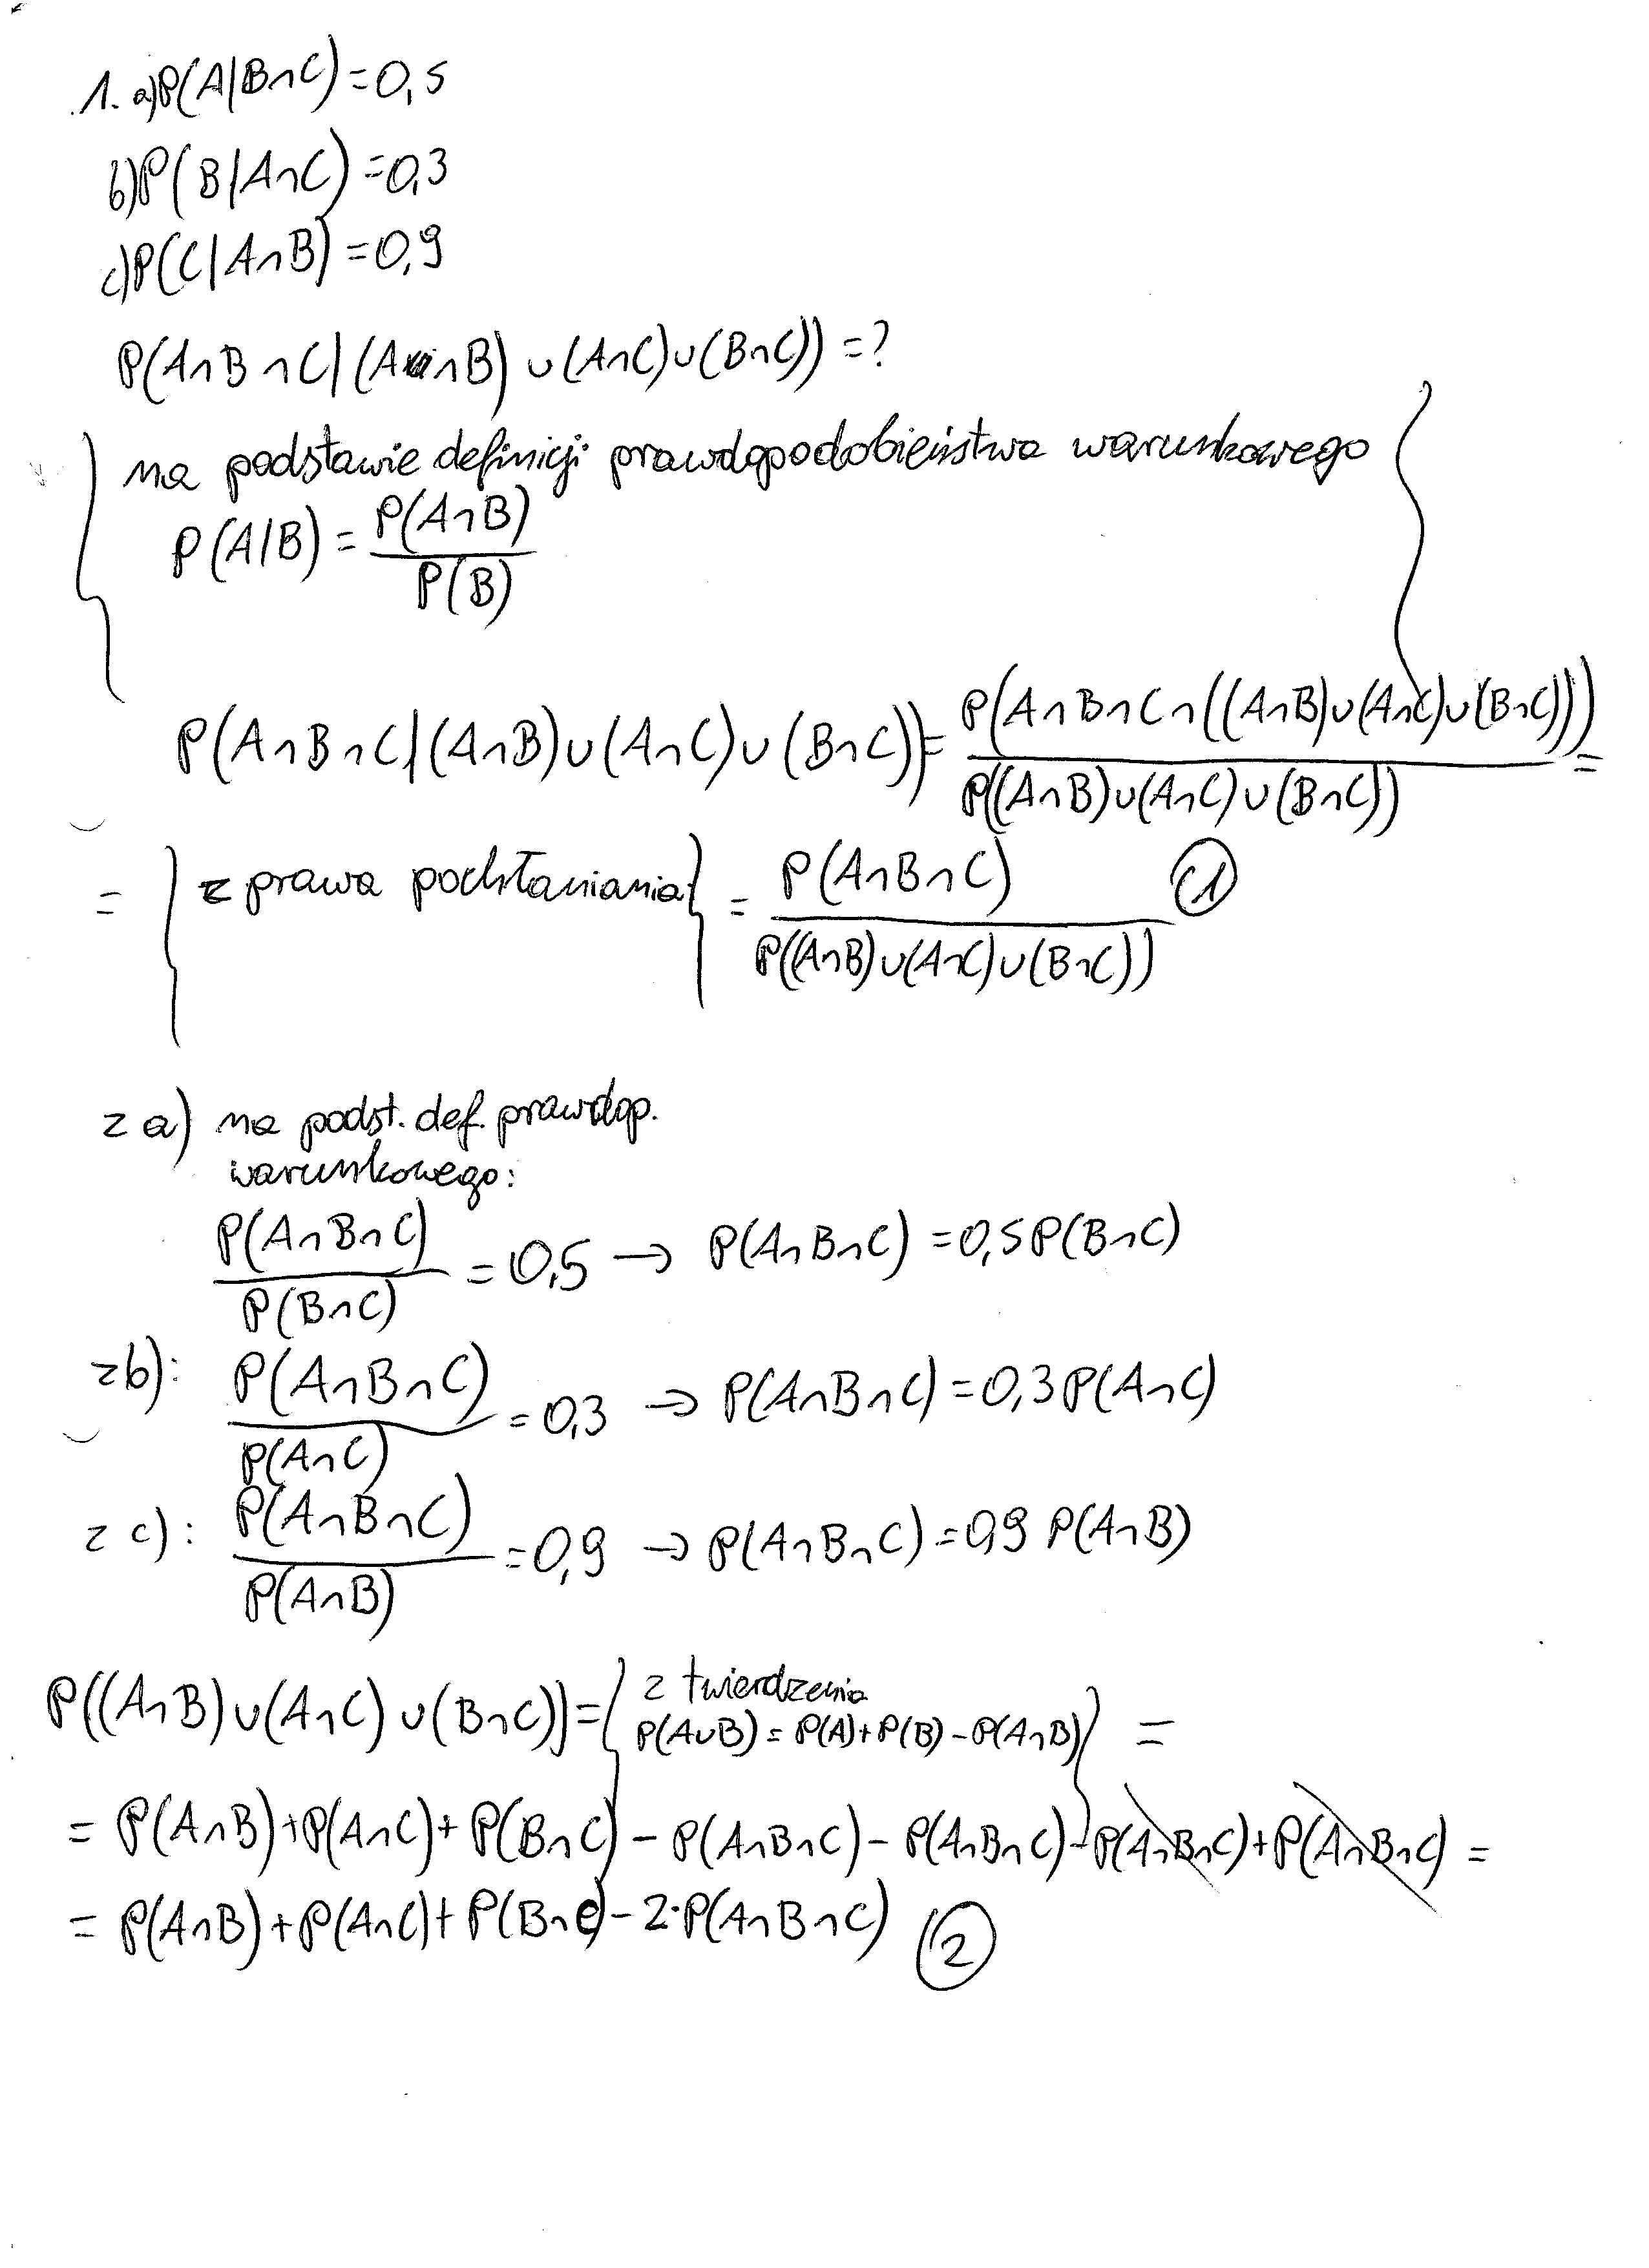 1. a) P(A|B∩C) = 0,5
b) P(B|A∩C) = 0,3
c) P(C|A∩B) = 0,9
P(A∩B∩C|(A∩B)∪(A∩C)∪(B∩C)) = ?
na podstawie definicji prawdopodobieństwa warunkowego
P(A|B) = P(A∩B) / P(B)
P(A∩B∩C|(A∩B)∪(A∩C)∪(B∩C)) = P(A∩B∩C∩((A∩B)∪(A∩C)∪(B∩C))) / P((A∩B)∪(A∩C)∪(B∩C)) =
= { z prawa pochłaniania } = P(A∩B∩C) / P((A∩B)∪(A∩C)∪(B∩C)) (1)
z a) na podst. def. prawdop.
warunkowego:
P(A∩B∩C) / P(B∩C) = 0,5 → P(A∩B∩C) = 0,5P(B∩C)
z b): P(A∩B∩C) / P(A∩C) = 0,3 → P(A∩B∩C) = 0,3P(A∩C)
z c): P(A∩B∩C) / P(A∩B) = 0,9 → P(A∩B∩C) = 0,9 P(A∩B)
P((A∩B)∪(A∩C)∪(B∩C)) = { z twierdzenia
P(A∪B) = P(A)+P(B)-P(A∩B) } =
= P(A∩B)+P(A∩C)+P(B∩C)-P(A∩B∩C)-P(A∩B∩C)-P(A∩B∩C)+P(A∩B∩C) =
= P(A∩B)+P(A∩C)+P(B∩C)-2·P(A∩B∩C) (2)